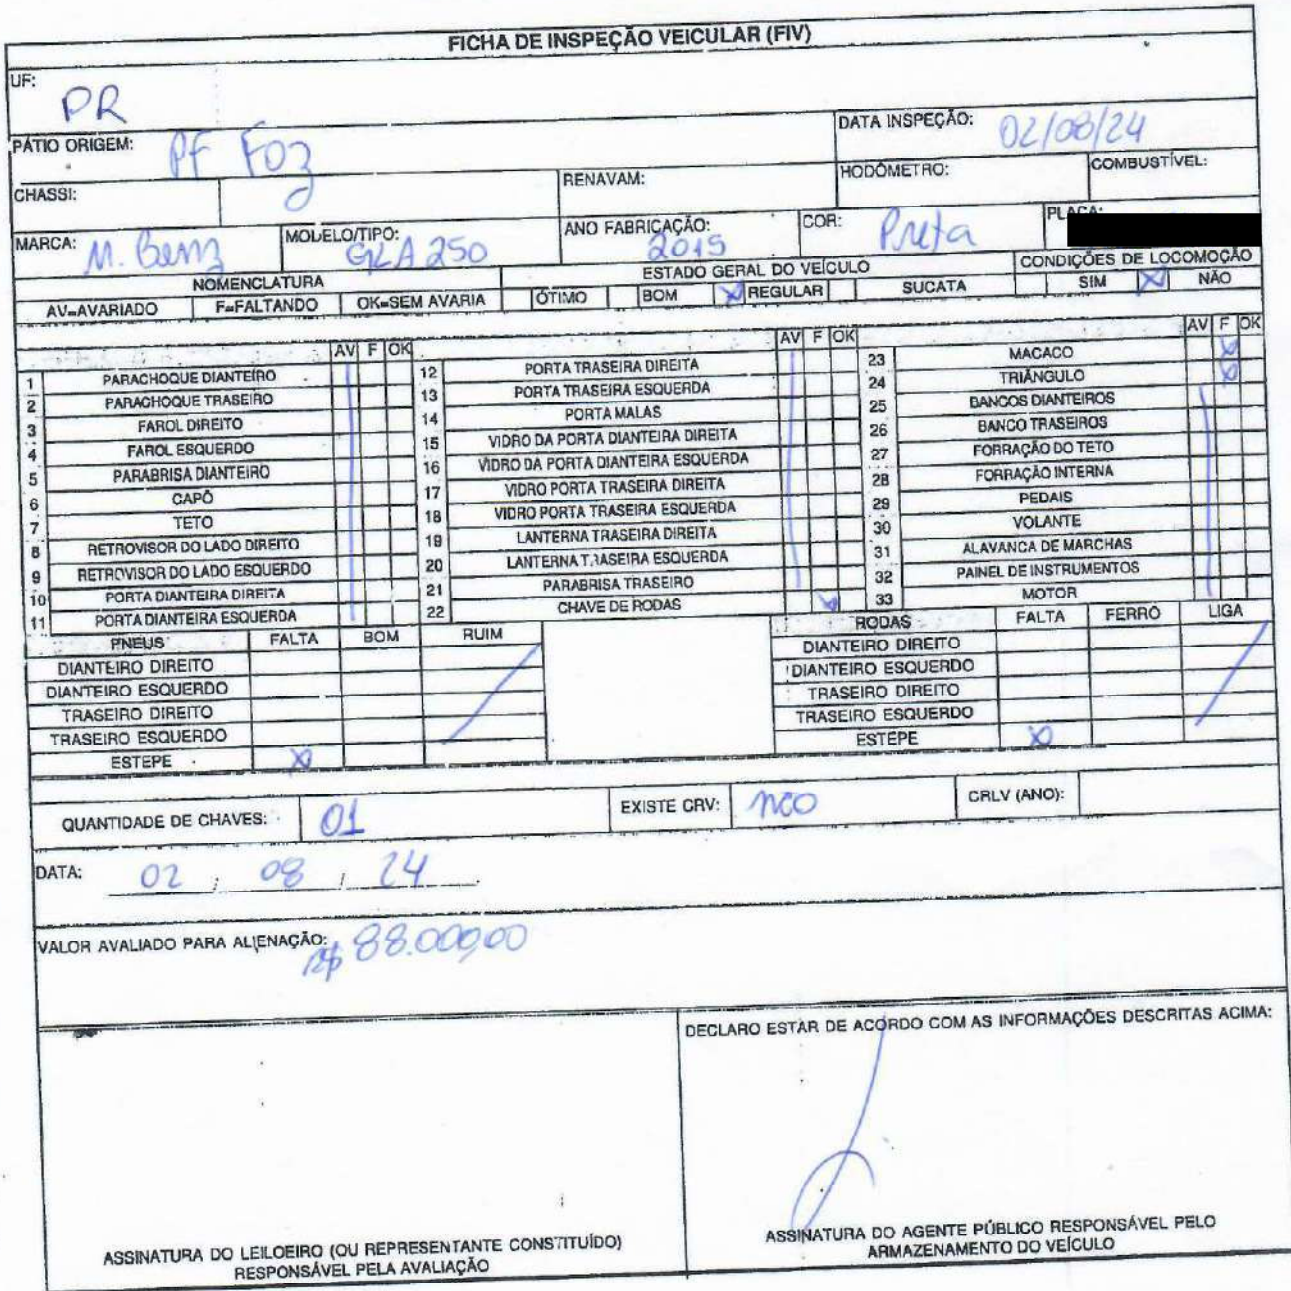 FICHA DE INSPEÇÃO VEICULAR (FIV)
UF:
PR
PÁTIO ORIGEM: PF Foz
DATA INSPEÇÃO: 02/08/24
CHASSI:
RENAVAM:
HODÔMETRO:
COMBUSTÍVEL:
MARCA: M. Benz
MODELO/TIPO: GLA 250
ANO FABRICAÇÃO: 2015
COR: Preta
PLACA:
NOMENCLATURA
ESTADO GERAL DO VEÍCULO
CONDIÇÕES DE LOCOMOÇÃO
AV=AVARIADO F=FALTANDO OK=SEM AVARIA ÓTIMO BOM X REGULAR SUCATA SIM X NÃO
AV F OK
1 PARACHOQUE DIANTEIRO
2 PARACHOQUE TRASEIRO
3 FAROL DIREITO
4 FAROL ESQUERDO
5 PARABRISA DIANTEIRO
6 CAPÔ
7 TETO
8 RETROVISOR DO LADO DIREITO
9 RETROVISOR DO LADO ESQUERDO
10 PORTA DIANTEIRA DIREITA
11 PORTA DIANTEIRA ESQUERDA
AV F OK
12 PORTA TRASEIRA DIREITA
13 PORTA TRASEIRA ESQUERDA
14 PORTA MALAS
15 VIDRO DA PORTA DIANTEIRA DIREITA
16 VIDRO DA PORTA DIANTEIRA ESQUERDA
17 VIDRO PORTA TRASEIRA DIREITA
18 VIDRO PORTA TRASEIRA ESQUERDA
19 LANTERNA TRASEIRA DIREITA
20 LANTERNA TRASEIRA ESQUERDA
21 PARABRISA TRASEIRO
22 CHAVE DE RODAS X
AV F OK
23 MACACO X
24 TRIÂNGULO X
25 BANCOS DIANTEIROS
26 BANCO TRASEIROS
27 FORRAÇÃO DO TETO
28 FORRAÇÃO INTERNA
29 PEDAIS
30 VOLANTE
31 ALAVANCA DE MARCHAS
32 PAINEL DE INSTRUMENTOS
33 MOTOR
PNEUS FALTA BOM RUIM
DIANTEIRO DIREITO
DIANTEIRO ESQUERDO
TRASEIRO DIREITO
TRASEIRO ESQUERDO
ESTEPE X
RODAS FALTA FERRO LIGA
DIANTEIRO DIREITO
DIANTEIRO ESQUERDO
TRASEIRO DIREITO
TRASEIRO ESQUERDO
ESTEPE X
QUANTIDADE DE CHAVES: 01
EXISTE CRV: não
CRLV (ANO):
DATA: 02 / 08 / 24
VALOR AVALIADO PARA ALIENAÇÃO: R$ 88.000,00
DECLARO ESTAR DE ACORDO COM AS INFORMAÇÕES DESCRITAS ACIMA:
ASSINATURA DO LEILOEIRO (OU REPRESENTANTE CONSTITUÍDO)
RESPONSÁVEL PELA AVALIAÇÃO
ASSINATURA DO AGENTE PÚBLICO RESPONSÁVEL PELO
ARMAZENAMENTO DO VEÍCULO